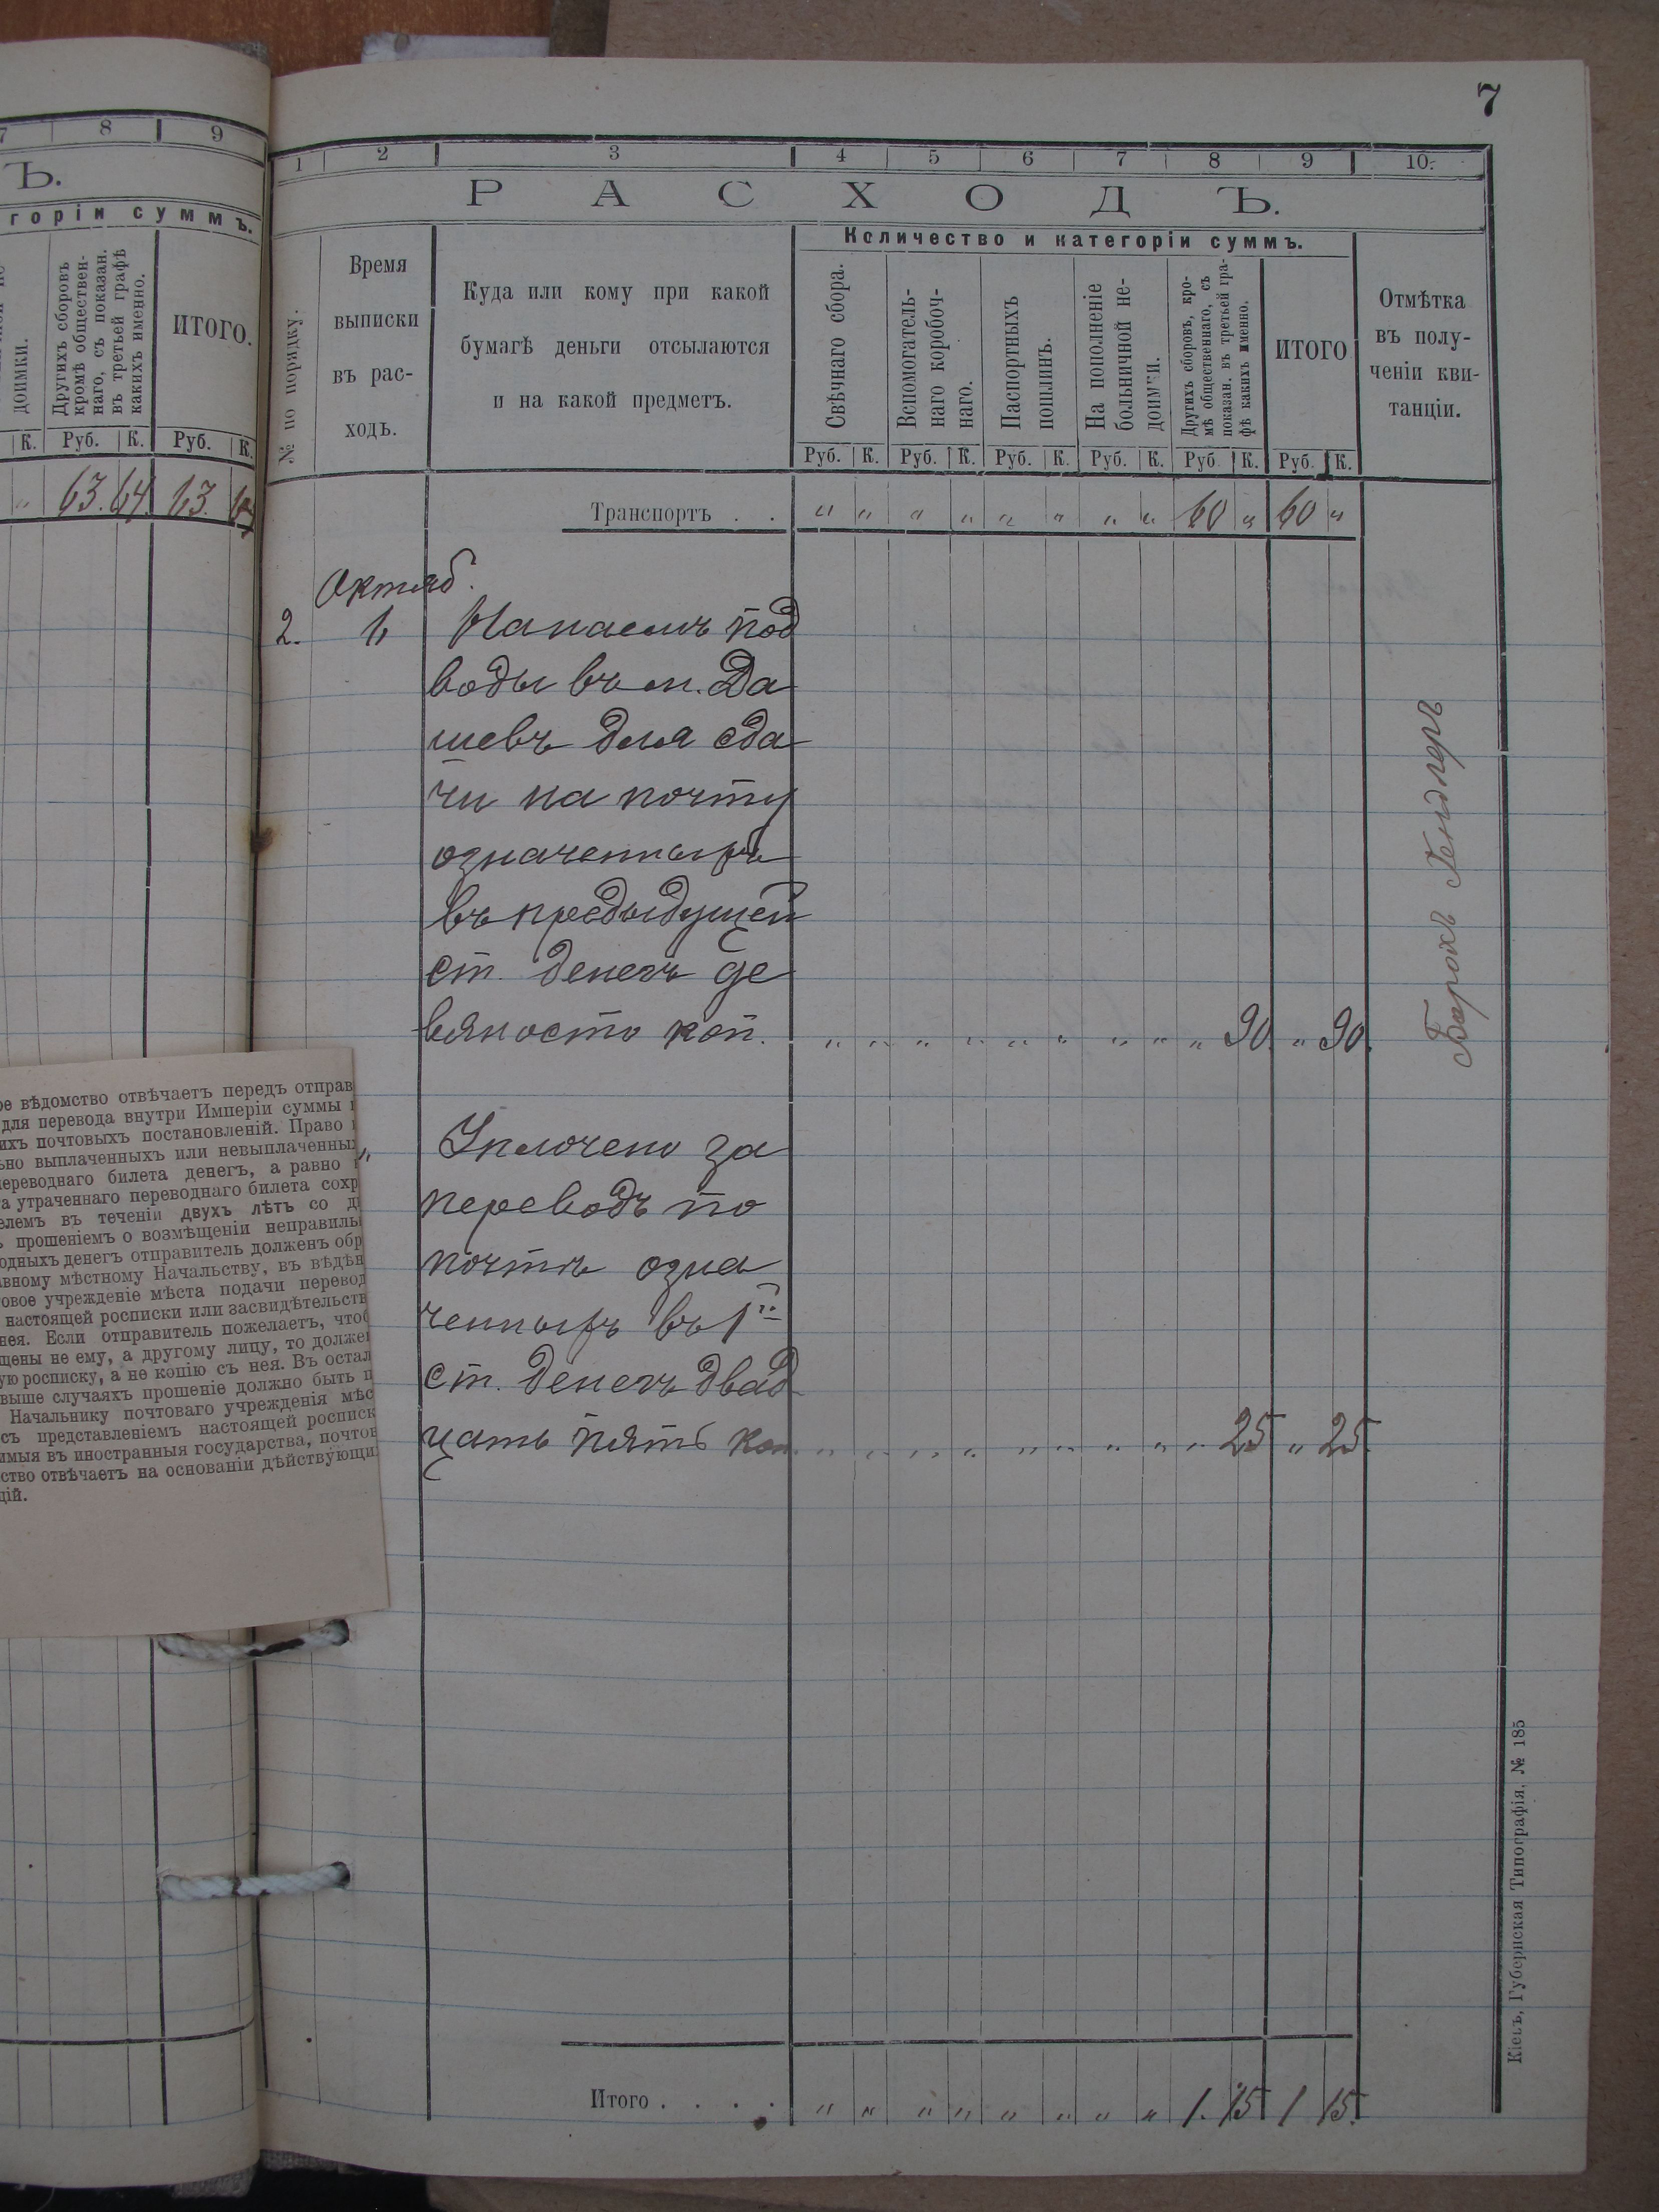 7
7 8 9
Ъ.
горіи суммъ.
доимки.
Другихъ сборовъ
кромѣ обществен-
наго, съ показан.
въ третьей графѣ
какихъ именно.
ИТОГО.
К. Руб. К. Руб. К.
„ 63. 64. 63.
1 2 3 4 5 6 7 8 9 10.
РАСХОДЪ.
№ по порядку.
Время
выписки
въ рас-
ходъ.
Куда или кому при какой
бумагѣ деньги отсылаются
и на какой предметъ.
Количество и категоріи суммъ.
Свѣчнаго сбора.
Вспомогатель-
наго коробоч-
наго.
Паспортныхъ
пошлинъ.
На пополненіе
больничной не-
доимки.
Другихъ сборовъ, кро-
мѣ общественнаго, съ
показан. въ третьей гра-
фѣ какихъ именно.
ИТОГО
Отмѣтка
въ полу-
ченіи кви-
танціи.
Руб. К. Руб. К. Руб. К. Руб. К. Руб. К. Руб. К.
Транспортъ . . „ „ „ „ „ „ „ „ 60 „ 60 „
Октяб.
2. 6 Наемъ под
воды въ м. Да
шевъ для сда
чи на почту
означенныхъ
въ предыдущей
ст. денегъ де
вяносто коп. „ „ „ „ „ „ „ „ „ 90. „ 90.
Уплочено за
переводъ по
почтѣ озна
ченныхъ въ 1й
ст. денегъ двад
цать пять коп. „ „ „ „ „ „ „ „ „ 25 „ 25.
Борохъ Гендлеръ
ое вѣдомство отвѣчаетъ передъ отправ
для перевода внутри Имперіи суммы
ихъ почтовыхъ постановленій. Право
ьно выплаченныхъ или невыплаченны
переводнаго билета денегъ, а равно
а утраченнаго переводнаго билета сохр
елемъ въ теченіи двухъ лѣтъ со д
ъ прошеніемъ о возмѣщеніи неправиль
одныхъ денегъ отправитель долженъ обр
авному мѣстному Начальству, въ вѣдѣн
овое учрежденіе мѣста подачи перевод
настоящей росписки или засвидѣтельств
нея. Если отправитель пожелаетъ, чтоб
щены не ему, а другому лицу, то долже
ую росписку, а не копію съ нея. Въ остал
выше случаяхъ прошеніе должно быть п
Начальнику почтоваго учрежденія мѣс
съ представленіемъ настоящей росписк
имыя въ иностранныя государства, почтов
ство отвѣчаетъ на основаніи дѣйствующи
цій.
Итого . . . . „ „ „ „ „ „ „ „ 1. 15 1 15.
Кіевъ, Губернская Типографія, № 185